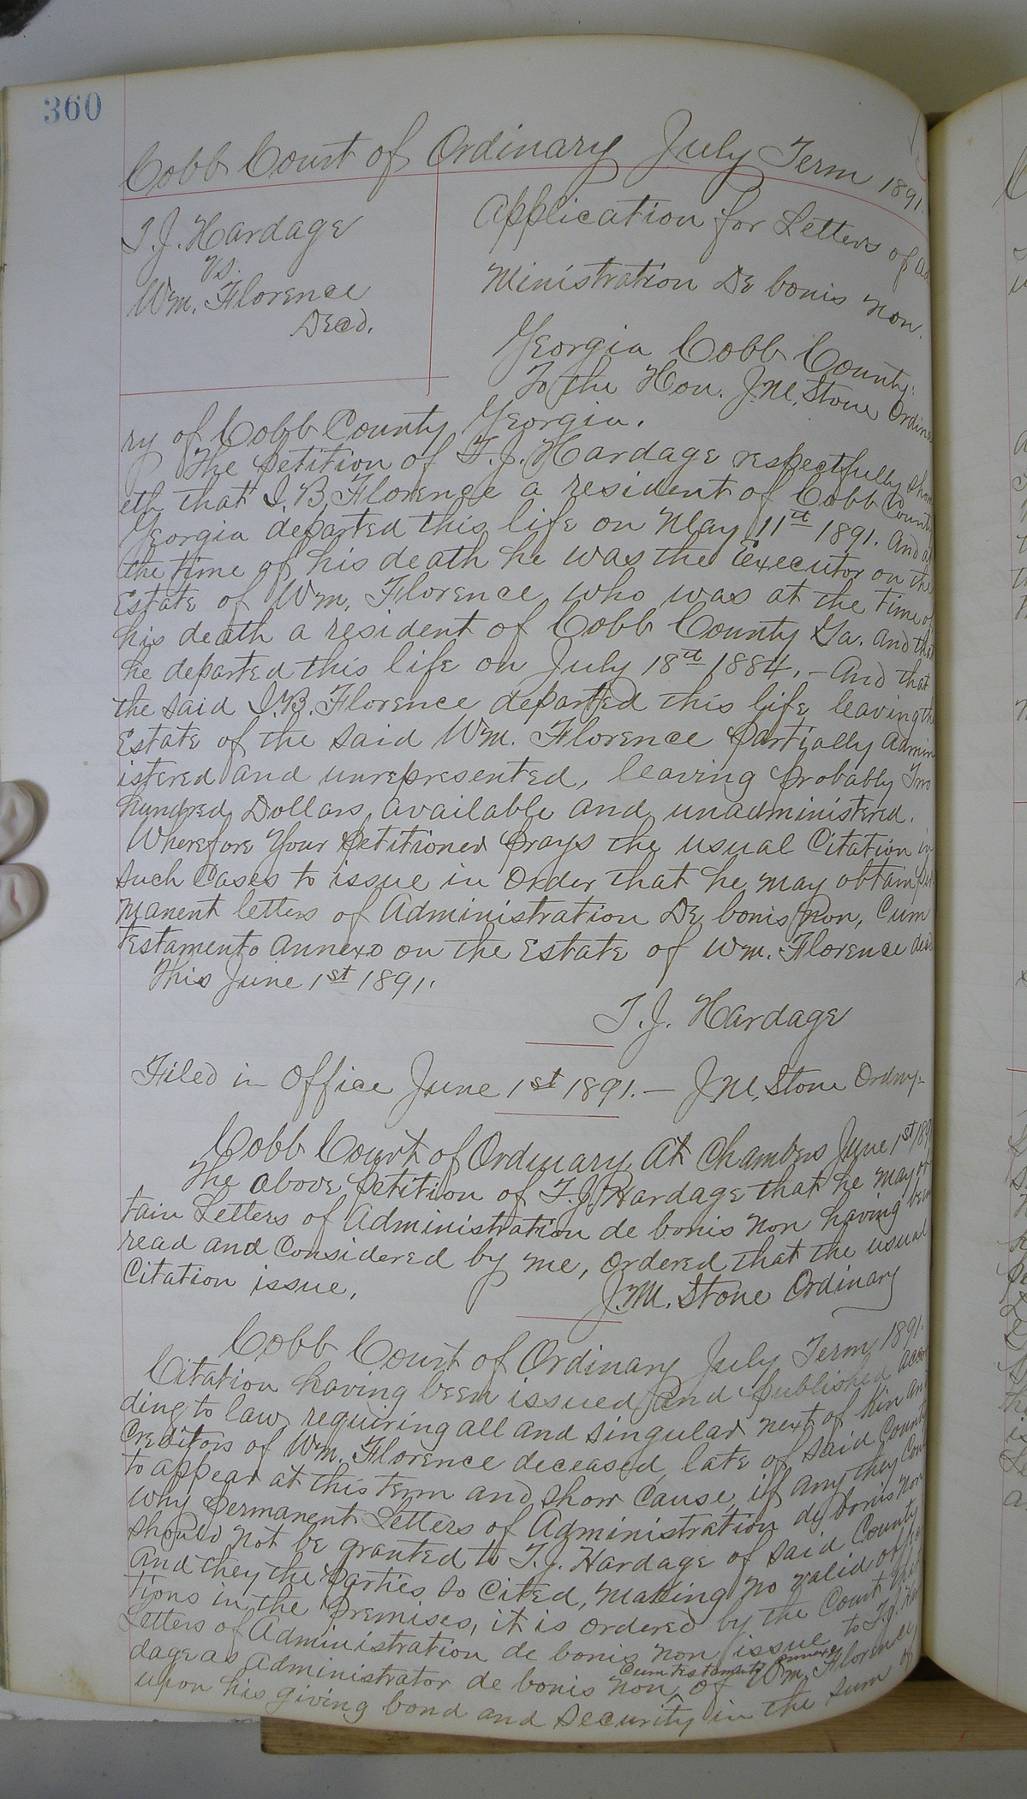 360
Cobb Court of Ordinary July Term 1891.
T. J. Hardage
vs.
Wm. Florence
Decd.
Application for Letters of Ad
ministration De bonis non.
Georgia Cobb County:
To the Hon. J.M. Stone Ordina
ry of Cobb County Georgia.
The petition of T. J. Hardage respectfully show
eth that I. B. Florence a resident of Cobb County
Georgia departed this life on May 11st 1891. And at
the time of his death he was the Executor on the
Estate of Wm. Florence, who was at the time of
his death a resident of Cobb County Ga. and that
he departed this life on July 18th 1884. - And that
the said I. B. Florence departed this life leaving the
Estate of the said Wm. Florence partially admin
istered and unrepresented, leaving probably Two
hundred Dollars available and unadministered.
Wherefore Your petitioner prays the usual Citation in
such Cases to issue in order that he may obtain per
manent letters of Administration De bonis non, Cum
testamento annexo on the Estate of Wm. Florence decd
This June 1st 1891.
T. J. Hardage
Filed in Office June 1st 1891. - J.M. Stone Ordny-
Cobb Court of Ordinary At Chambers June 1st 189
The above petition of T. J. Hardage that he may ob
tain Letters of Administration de bonis non having been
read and Considered by me, ordered that the usual
Citation issue.
J.M. Stone Ordinary
Cobb Court of Ordinary July Term 1891.
Citation having been issued and published accor
ding to law, requiring all and singular next of kin and
Creditors of Wm. Florence deceased, late of said County
to appear at this term and show cause, if any they Can
why permanent Letters of Administration de bonis non
should not be granted to T. J. Hardage of said County
And they the parties so Cited, making no valid objec
tions in the premises, it is ordered by the Court that
Letters of Administration de bonis non issue to T. J. Har
dage as Administrator de bonis non, Cum testamento annexo of Wm. Florence
upon his giving bond and security in the sum of